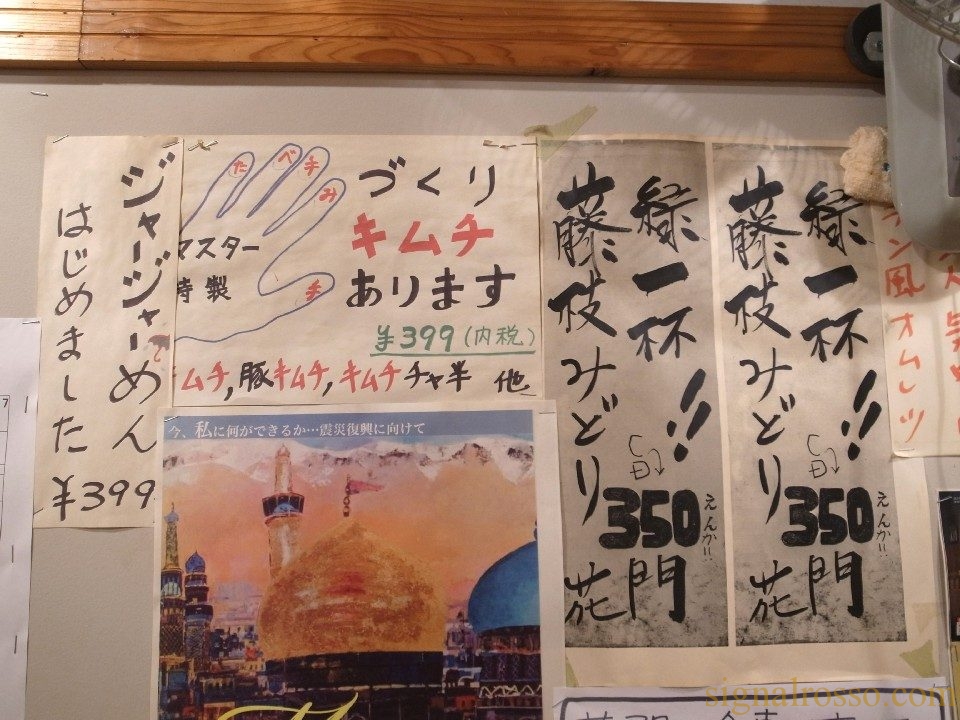 ジャージャーめん
はじめました
¥399
た
べ
チ
み
手
づくり
キムチ
あります
マスター
特製
¥399(内税)
ムチ,豚キムチ,キムチチャ羊 他
今、私に何ができるか…震災復興に向けて
緑一杯!!
350
えんか!!
門
藤枝みどり
花
緑一杯!!
350
えんか!!
門
藤枝みどり
花
風オムレツ
signalrosso.com